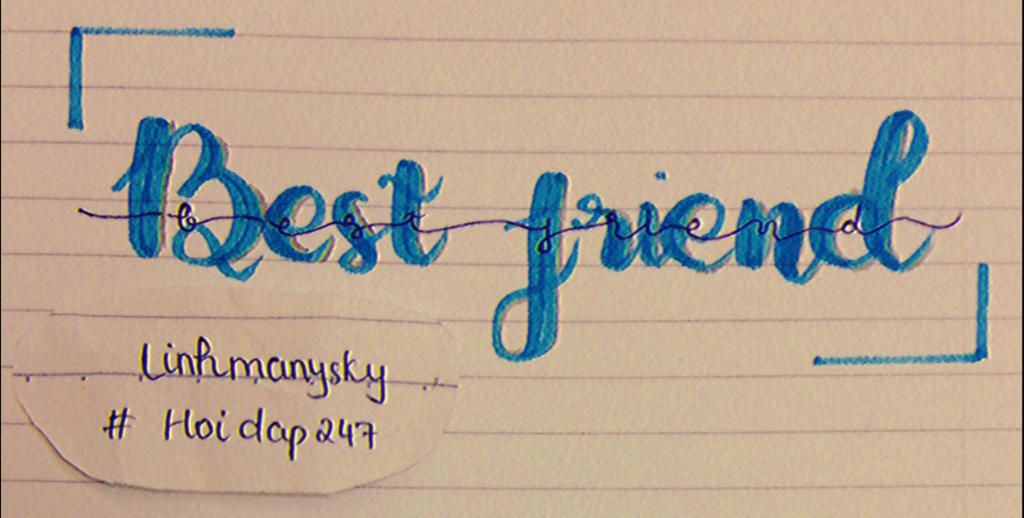 Best friend
best friend
Linhmanysky
# Hoidap247